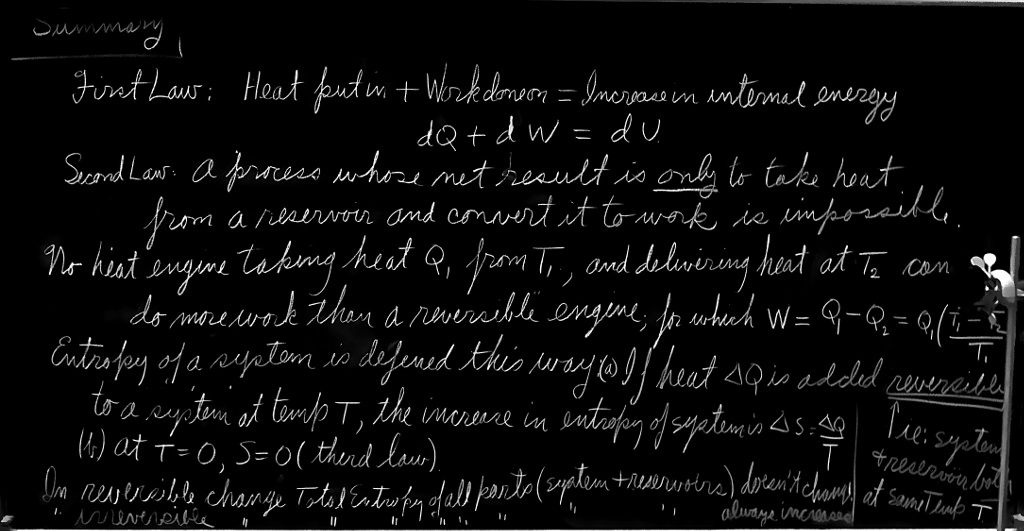 Summary
First Law: Heat put in + Work done on = Increase in internal energy
dQ + dW = dU
Second Law: A process whose net result is only to take heat
from a reservoir and convert it to work is impossible.
No heat engine taking heat Q₁ from T₁, and delivering heat at T₂ can
do more work than a reversible engine, for which W = Q₁ - Q₂ = Q₁(T₁ - T₂ / T₁
Entropy of a system is defined this way (a) If heat ΔQ is added reversible
to a system at temp T, the increase in entropy of system is ΔS = ΔQ/T
(b) at T = 0, S = 0 (third law)
In reversible change Total Entropy of all parts (system + reservoirs) doesn't change
irreversible " " " " " " always increases
ie: system
+ reservoir both
at same Temp T